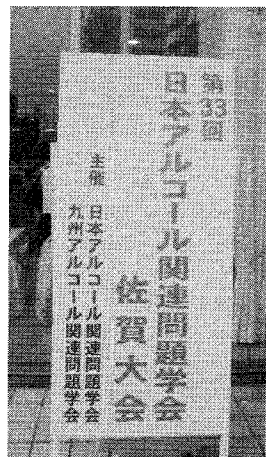 第33回
日本アルコール関連問題学会
佐賀大会
主催
日本アルコール関連問題学会
九州アルコール関連問題学会